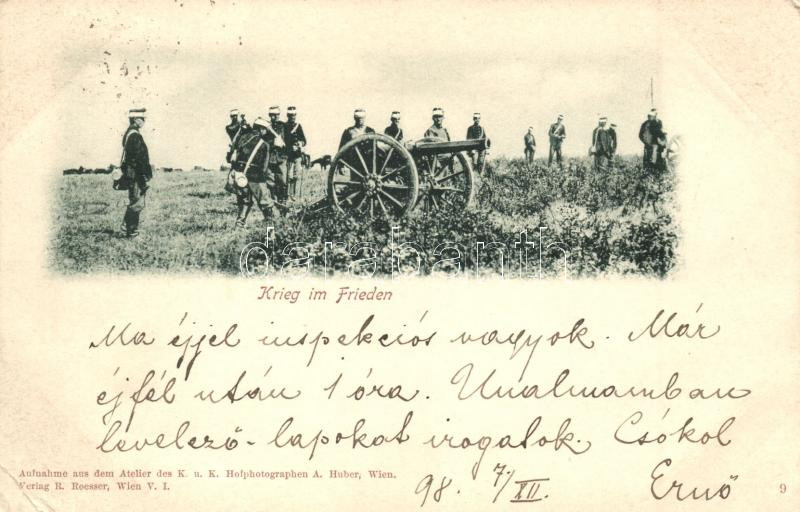 darabanth
Krieg im Frieden
Ma éjjel inspekciós vagyok. Már
éjfél után 1 óra. Unalmamban
levelező-lapokat irogatok. Csókol
Aufnahme aus dem Atelier des K. u. K. Hofphotographen A. Huber, Wien.
Verlag R. Reesser, Wien V. I.
98. 7/XII.
Ernő
9